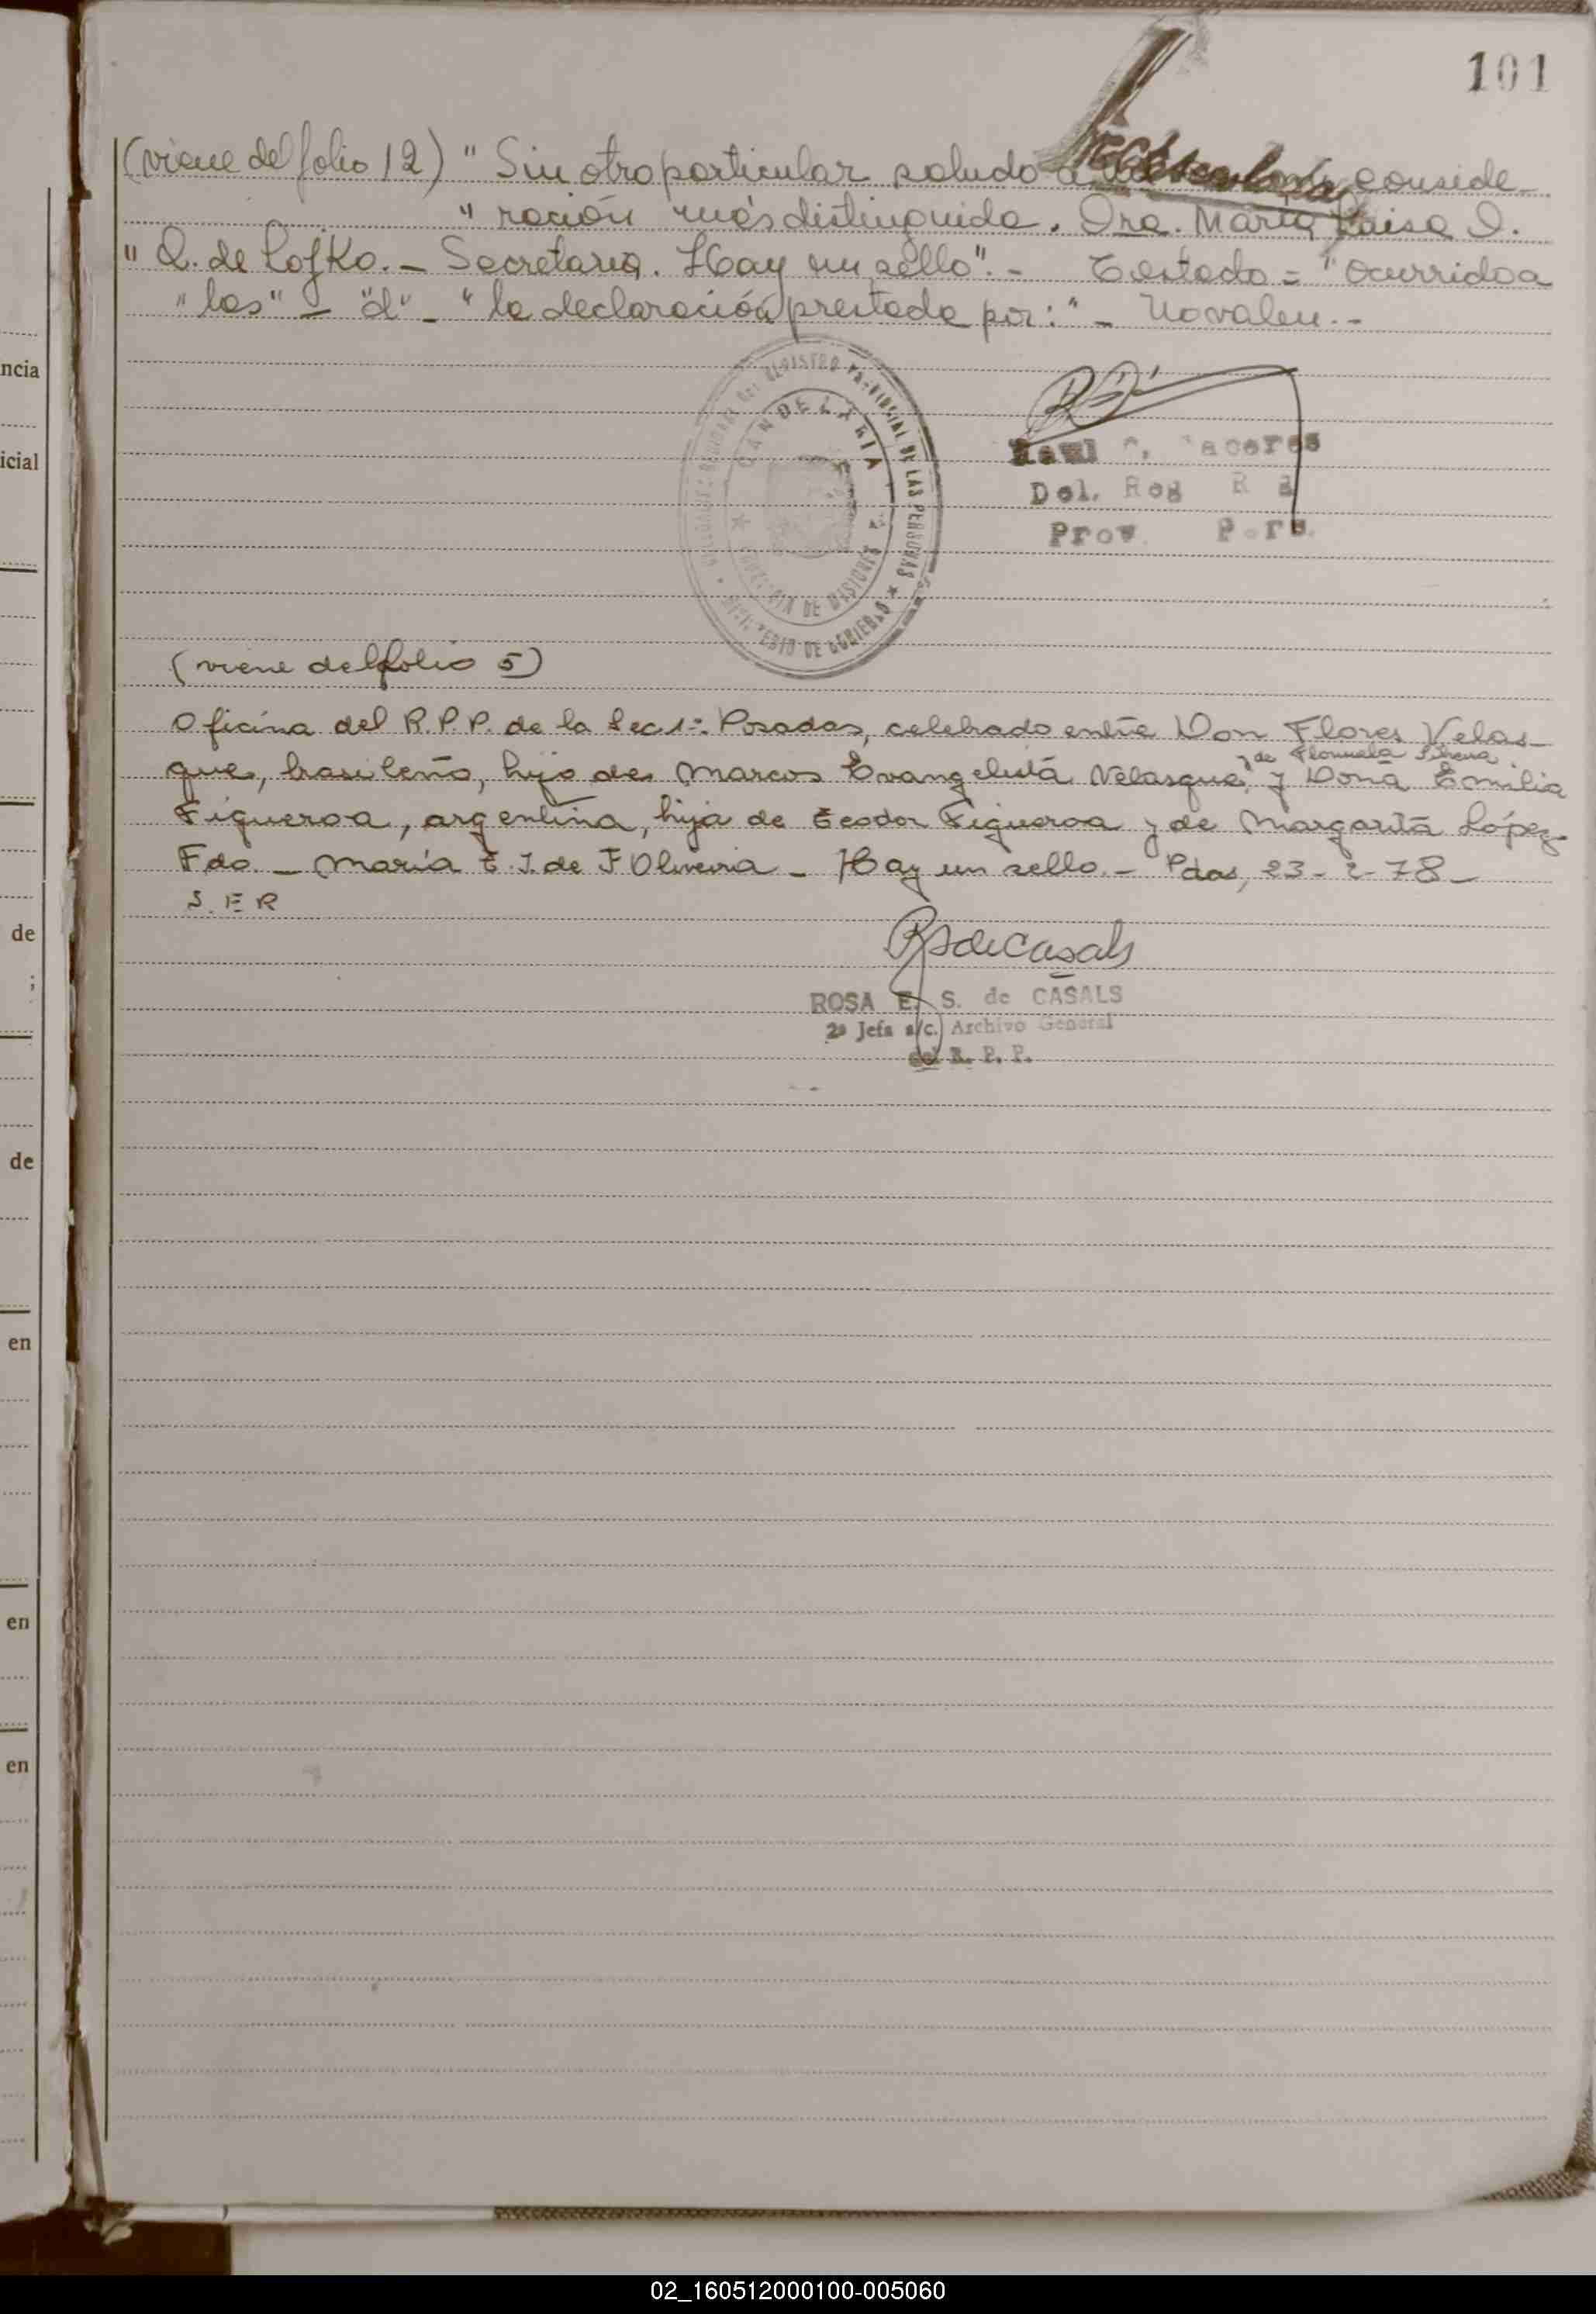 101
(viene del folio 12) " Sin otro particular saludo a conside-
" ración más distinguida. Dra. María Luisa D.
" Q. de Lofko. - Secretaria. Hay un sello". - Testado = "ocurrido a
" las" - "d" - "la declaración prestada por:" - No valen. -
CANDELARIA
DEL REGISTRO PROVINCIAL DE LAS PERSONAS
DE MISIONES
MINISTERIO DE GOBIERNO
Raul Caceres
Del. Reg
Prov. Pers.
(viene del folio 5)
Oficina del R.P.P. de la Sec 1ª: Posadas, celebrado entre Don Flores Velas-
y de
que, brasileño, hijo de Marcos Evangelista Velasque, y Doña Emilia
Figueroa, argentina, hija de Teodor Figueroa y de Margarita López-
Fdo - María E. I. de F Oliveira - Hay un sello. - Pdas, 23-2-78-
S. E R
RSdeCasals
ROSA E. S. de CASALS
2ª Jefa a/c. Archivo General
del R. P. P.
ncia
icial
de
;
de
en
en
en
02_160512000100-005060